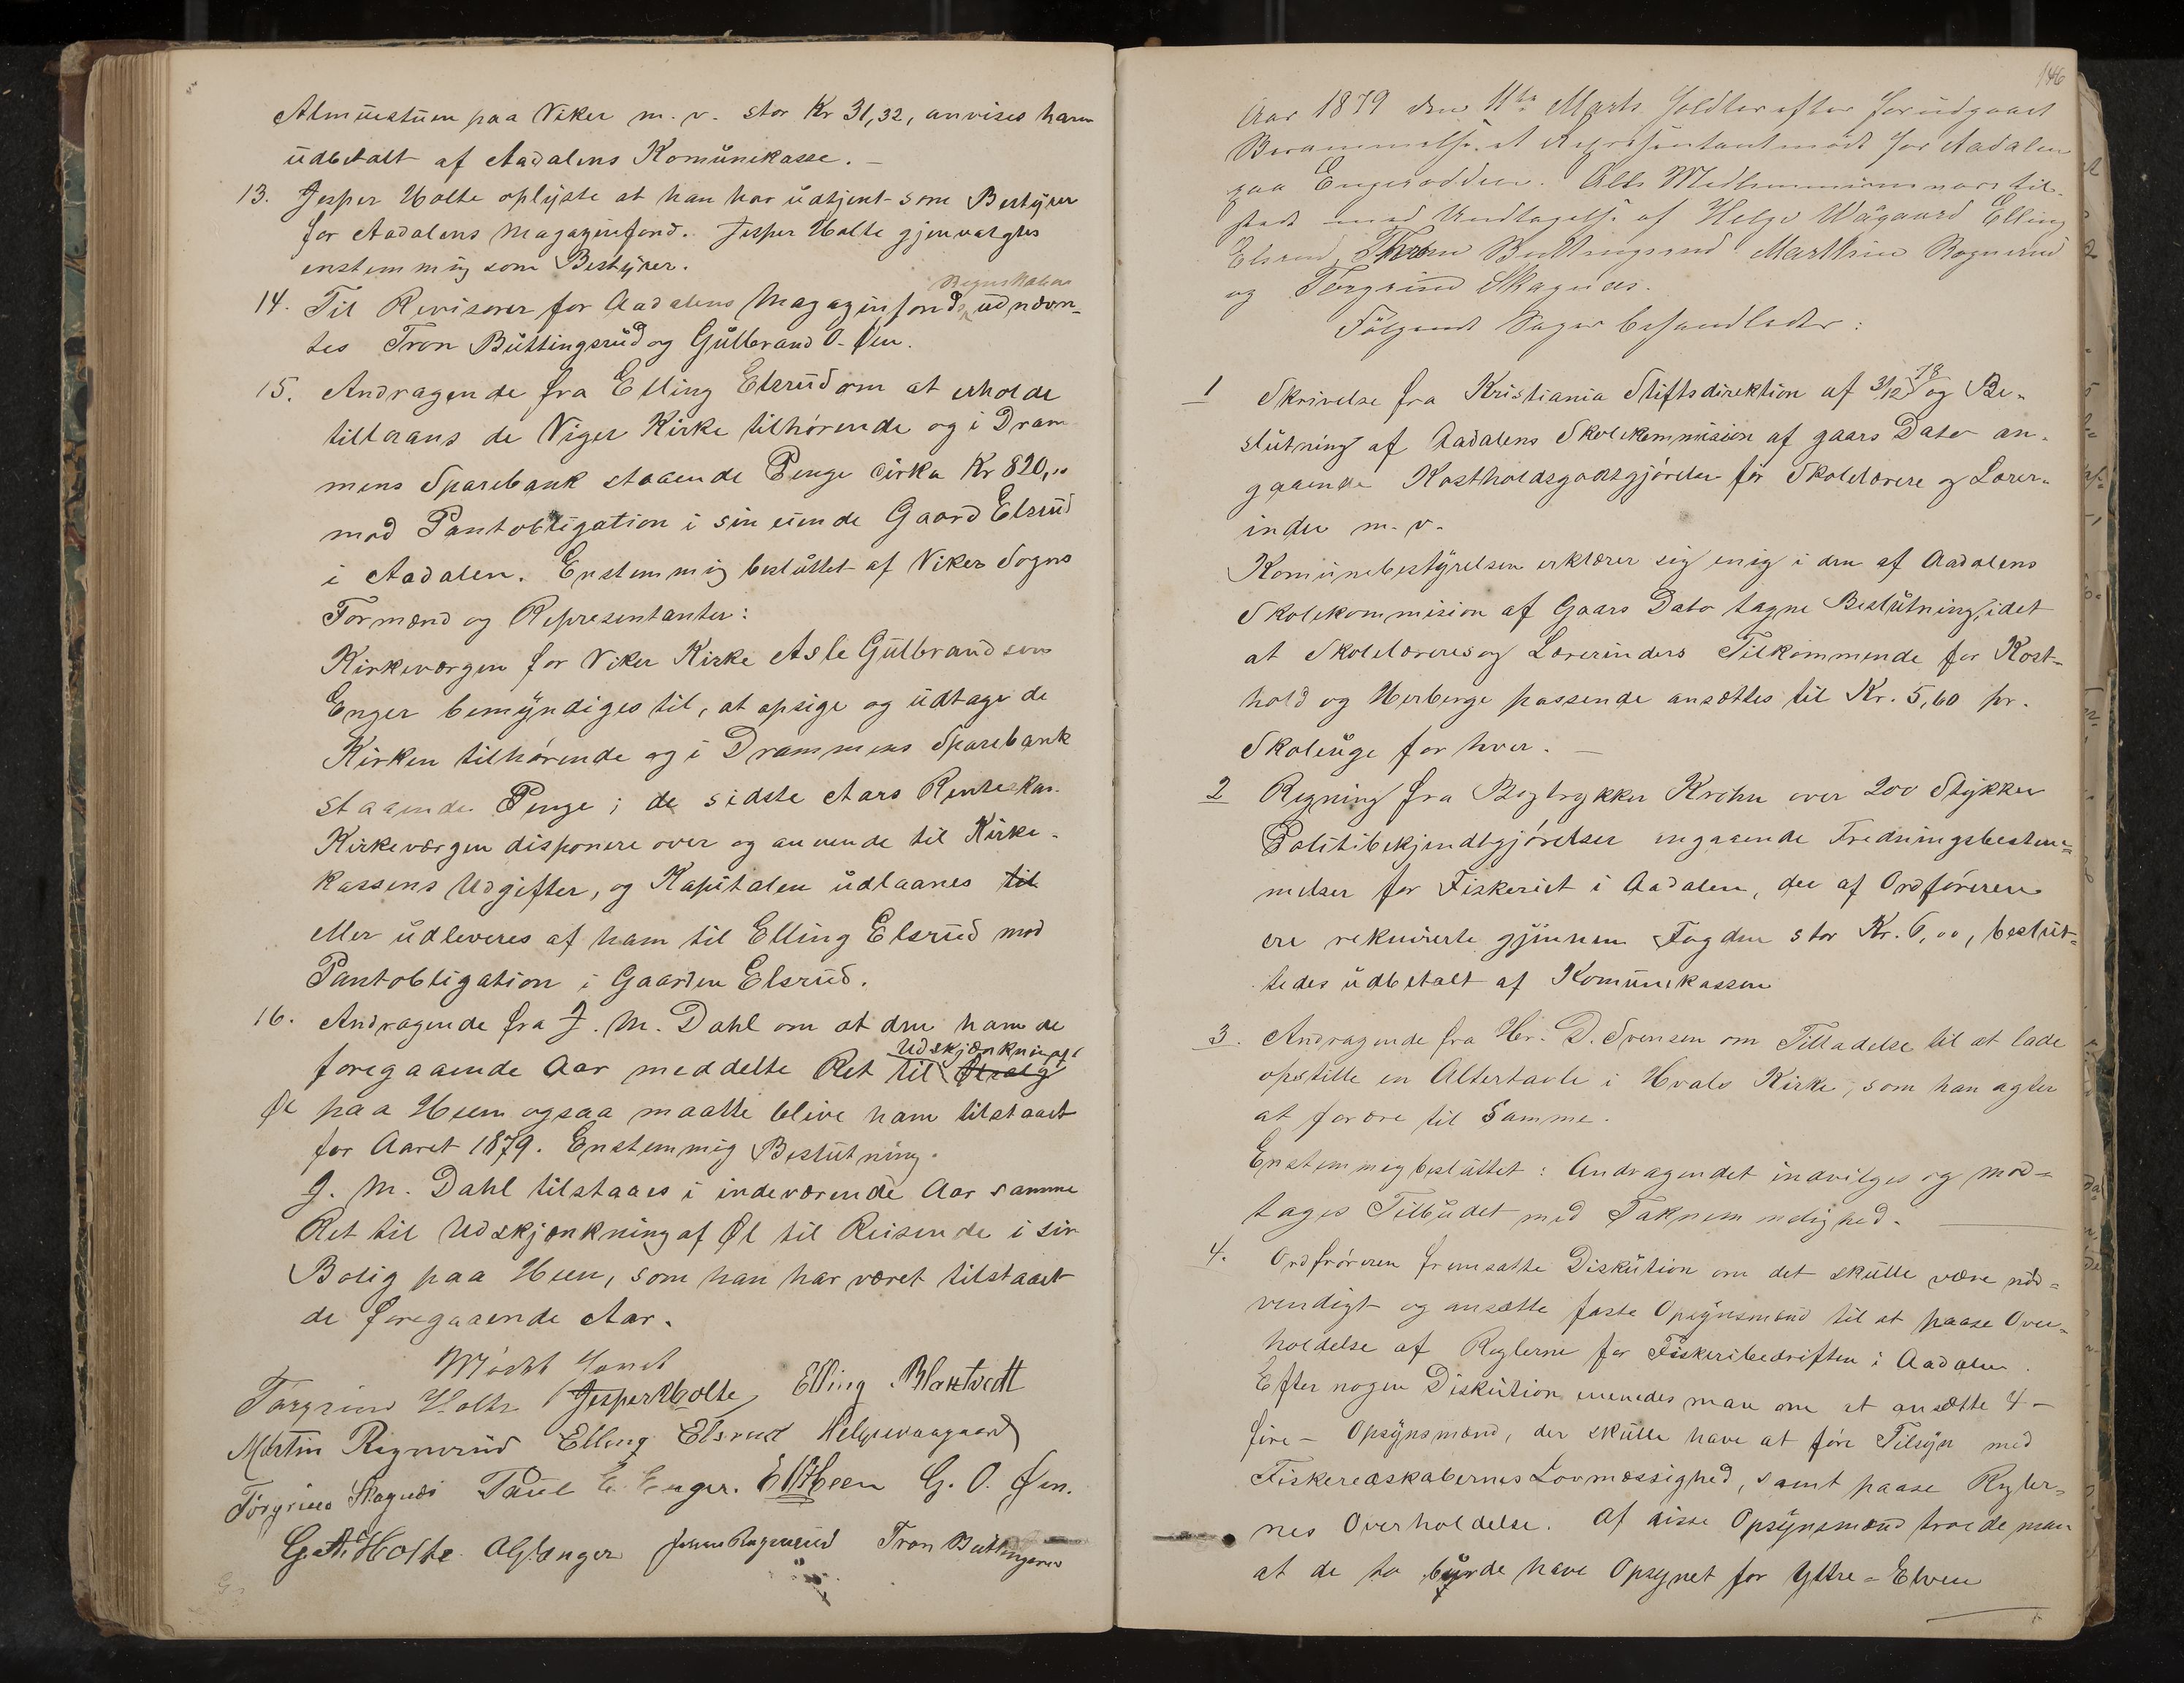 Almuestuen paa Viker m. v. stor Kr 31,32, anvises ham
udbetalt af Aadalens Komunekasse. –
13. Jesper Holte oplyste at han har udtjent som Bestyrer
for Aadalens Magazinfond. Jesper Holte gjenvalgtes
enstemmig som Bestyrer.
Regnskaber
14. Til Revisorer for Aadalens Magazinfonds udnævn-
tes Tron Buttingsrud og Gulbrand O. Øen.
15. Andragende fra Elling Elsrud om at erholde
tillaans de Viger Kirke tilhørende og i Dram
mens Sparebank staaende Penge cirka Kr 820,00
mod Pantobligation i sin eiende Gaard Elsrud
i Aadalen. Enstemmig besluttet af Viker Sogns
Formænd og Representanter:
Kirkeværgen for Viker Kirke Asle Gulbrandsen
Enger bemyndiges til, at opsige og udtage de
Kirken tilhørende og i Drammens Sparebank
staaende Penge; de sidste Aars Renter kan
Kirkeværgen disponere over og anvende til Kirke-
kassens Udgifter, og Kapitalen udlaanes til
eller udleveres af ham til Elling Elsrud mod
Pantobligation i Gaarden Elsrud.
16. Andragende fra J. M. Dahl om at den ham de
Udskjænkning af
foregaaende Aar meddelte Ret til Ølsalg
Øl paa Heen ogsaa maatte blive ham tilstaaet
for Aaret 1879. Enstemmig Beslutning.
J. M. Dahl tilstaaes i indeværende Aar samme
Ret til Udskjænkning af Øl til Reisende i sin
Bolig paa Heen, som han har været tilstaaet
de foregaaende Aar.
Mødet hævet
Torgrim Holte Jesper Holte Elling Blakstvedt
Martin Rognerud Elling Elsrud Helge Vaagaard
Torgrim Skagnæs Paul E. Enger. E Heen G. O. Øen.
G. A. Holte. A G Enger Rognerud Tron Buttingsrud
146
Aar 1879 den 11te Marts holdtes efter forudgaaet
Berammelse et Representantmøde for Aadalen
paa Engerodden. Alle Medlemmerne vare til-
stede med Undtagelse af Helge Wågaard Elling
Elsrud, Thron Buttingsrud Marthin Rognerud
og Torgrim Skagnæs.
Følgende Sager behandledes:
1 Skrivelse fra Kristiania Stiftsdirektion af 3/12 78 og Be-
slutning af Aadalens Skolekommision af gaars Dato an-
gaaende Kostholdsgodtgjørelse for Skolelærere og Lærer-
inder m. v.
Komunebestyrelsen erklærer sig enig i den af Aadalens
Skolekommision af Gaars Dato tagne Beslutning, idet
at Skolelæreres og Lærerinders Tilkommende for Kost-
hold og Herberge passende ansættes til Kr. 5,60 pr.
Skoleuge for hver. –
2 Regning fra Bogtrykker Krohn over 200 Stykker
Politibekjendtgjørelser angaaende Fredningsbestem-
melser for Fiskeriet i Aadalen, der af Ordføreren
ere rekvirerte gjennem Fogden stor Kr. 6,00, beslut-
tedes udbetalt af Komunekassen
3. Andragende fra Hr. D. Svensen om Tilladelse til at lade
opstille en Altertavle i Hvals Kirke, som han agter
at forære til Samme.
Enstemmig besluttet: Andragendet indvilges og mod-
tages Tilbudet med Taknemmelighed.
4. Ordføreren fremsatte Diskution om det skulle være nød-
vendigt og ansætte faste Opsynsmænd til at paase Over-
holdelse af Reglerne for Fiskeribedriften i Aadalen.
Efter nogen Diskution enenedes man om at ansætte 4 –
fire – Opsynsmænd, der skulle have at føre Tilsyn med
Fiskeredskabernes Lovmæssighed, samt paase Regler-
nes Overholdelse. Af disse Opsynsmænd troede man
at de to burde have Opsynet for Yttre-Elven